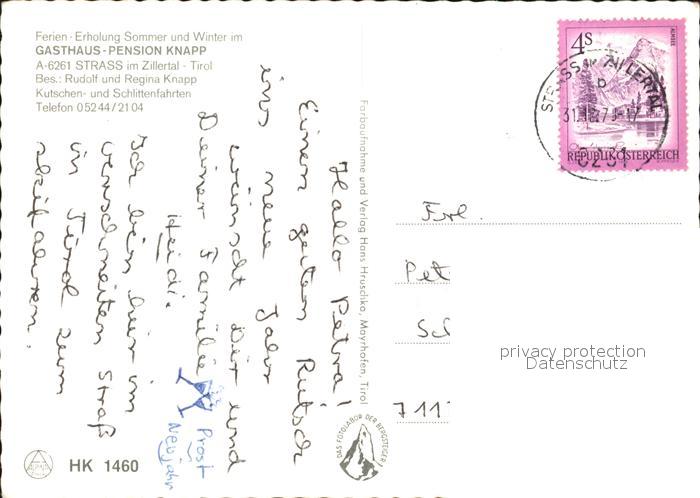 Ferien - Erholung Sommer und Winter im
GASTHAUS - PENSION KNAPP
A-6261 STRASS im Zillertal - Tirol
Bes.: Rudolf und Regina Knapp
Kutschen- und Schlittenfahrten
Telefon 05244/2104
Hallo Petra!
Einen guten Rutsch
ins neue Jahr
wünscht Dir und
Deiner Familie
Heidi.
Ich bin hier im
verschneiten Straß
in Tirol zum
skifahren.
Prost
Neujahr
HK 1460
Farbaufnahme und Verlag Hans Hruschka, Mayrhofen, Tirol
DAS FOTOLABOR DER BERGSTEIGER
4S
ALMSEE
REPUBLIK ÖSTERREICH
STRASS IM ZILLERTAL
b
6261
Frl.
Pet
Sch
711
privacy protection
Datenschutz